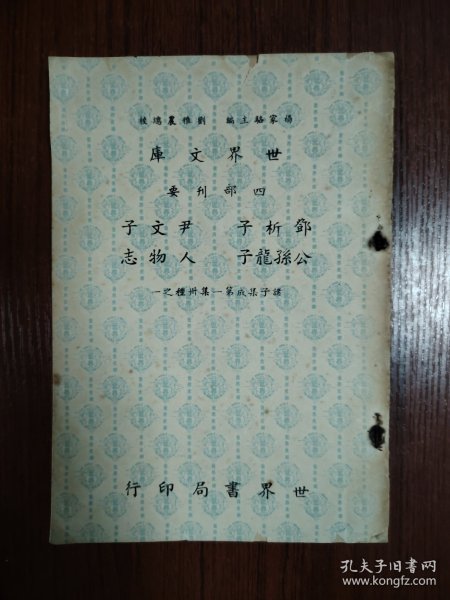 楊家駱主編 劉雅農總校
世界文庫
四部刊要
鄧析子 尹文子
公孫龍子 人物志
諸子集成第一集卅種之一
世界書局印行
孔夫子旧书网
www.kongfz.com